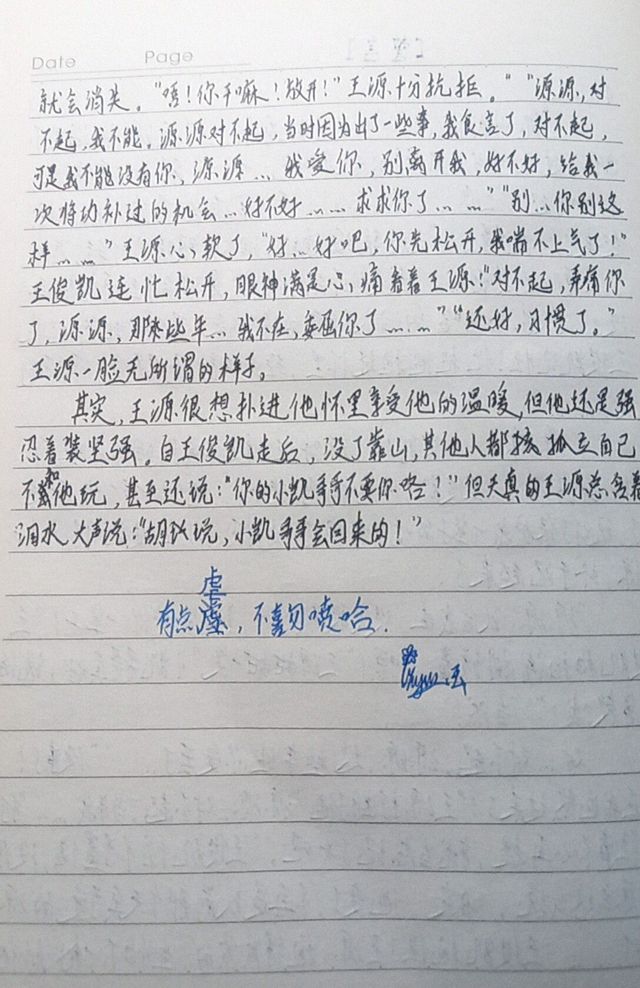 Date Page
就会消失。"唔！你干嘛！放开！"王源十分抗拒。""源源，对
不起，我不能，源源对不起，当时因为出了一些事，我食言了，对不起，
可是我不能没有你，源源…我爱你，别离开我，好不好，给我一
次将功补过的机会…好不好……求求你了……""别…你别这
样……"王源心软了，"好…好吧，你先松开，我喘不上气了！"
王俊凯连忙松开，眼神满是心痛看着王源："对不起，弄痛你
了，源源，那些年…我不在，委屈你了……""还好，习惯了。"
王源一脸无所谓的样子。
其实，王源很想扑进他怀里享受他的温暖，但他还是强
忍着装坚强。自王俊凯走后，没了靠山，其他人都孤立自己
不和他玩，甚至还说："你的小凯哥哥不要你咯！"但天真的王源总含着
泪水大声说："胡说，小凯哥哥会回来的！"
虐
有点虚，不喜勿喷哈.